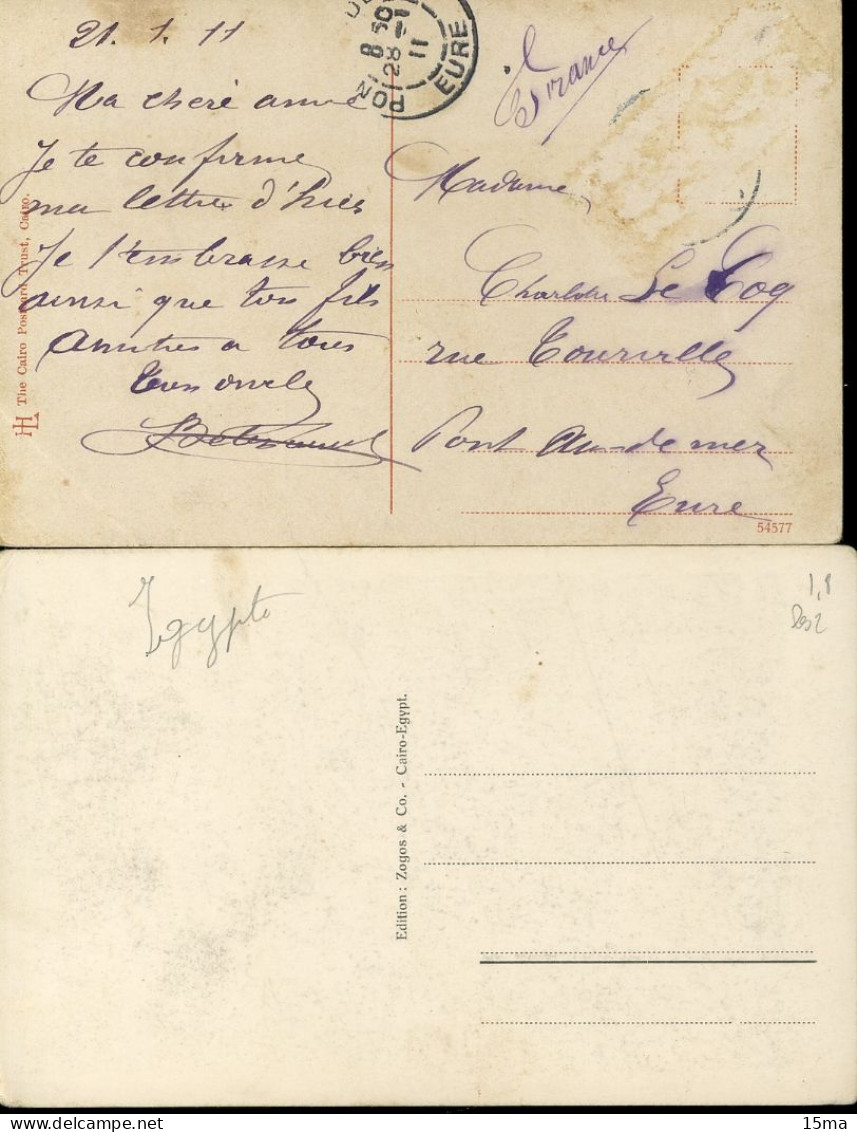 21. 1. 11
Ma chere amie
Je te confirme
ma lettre d'hier
Je t'embrasse bien
ainsi que ton fils
Amities a tous
Ton oncle
The Cairo Postcard Trust, Cairo.
PON
8 50
28 - 1
11
EURE
France
Madame
Charlotte Le Coq
rue Tourville
Pont Au-de mer
Eure
54577
Egypte
1,8
Edition: Zogos & Co. - Cairo-Egypt.
15ma